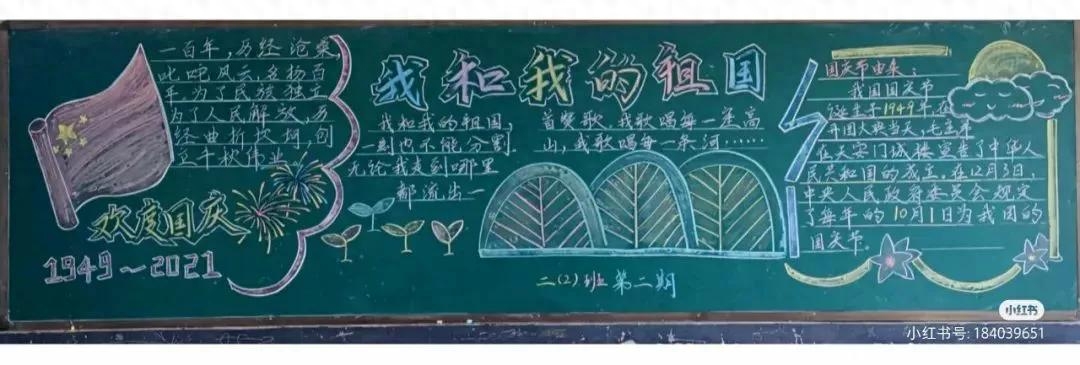 一百年,历经沧桑
叱咤风云,名扬百
年,为了民族独立
为了人民解放,历
经曲折坎坷,创
立千秋伟业
欢度国庆
1949~2021
我和我的祖国
我和我的祖国,
一刻也不能分割
无论我走到哪里
都流出一
首赞歌,我歌唱每一座高
山,我歌唱每一条河……
二(2)班 第二期
国庆节由来:
我国国庆节
诞生于1949年,在
开国大典当天,毛主席
在天安门城楼宣告了中华人
民共和国的成立。在12月3日,
中央人民政府委员会规定
了每年的10月1日为我国的
国庆节。
小红书
小红书号: 184039651